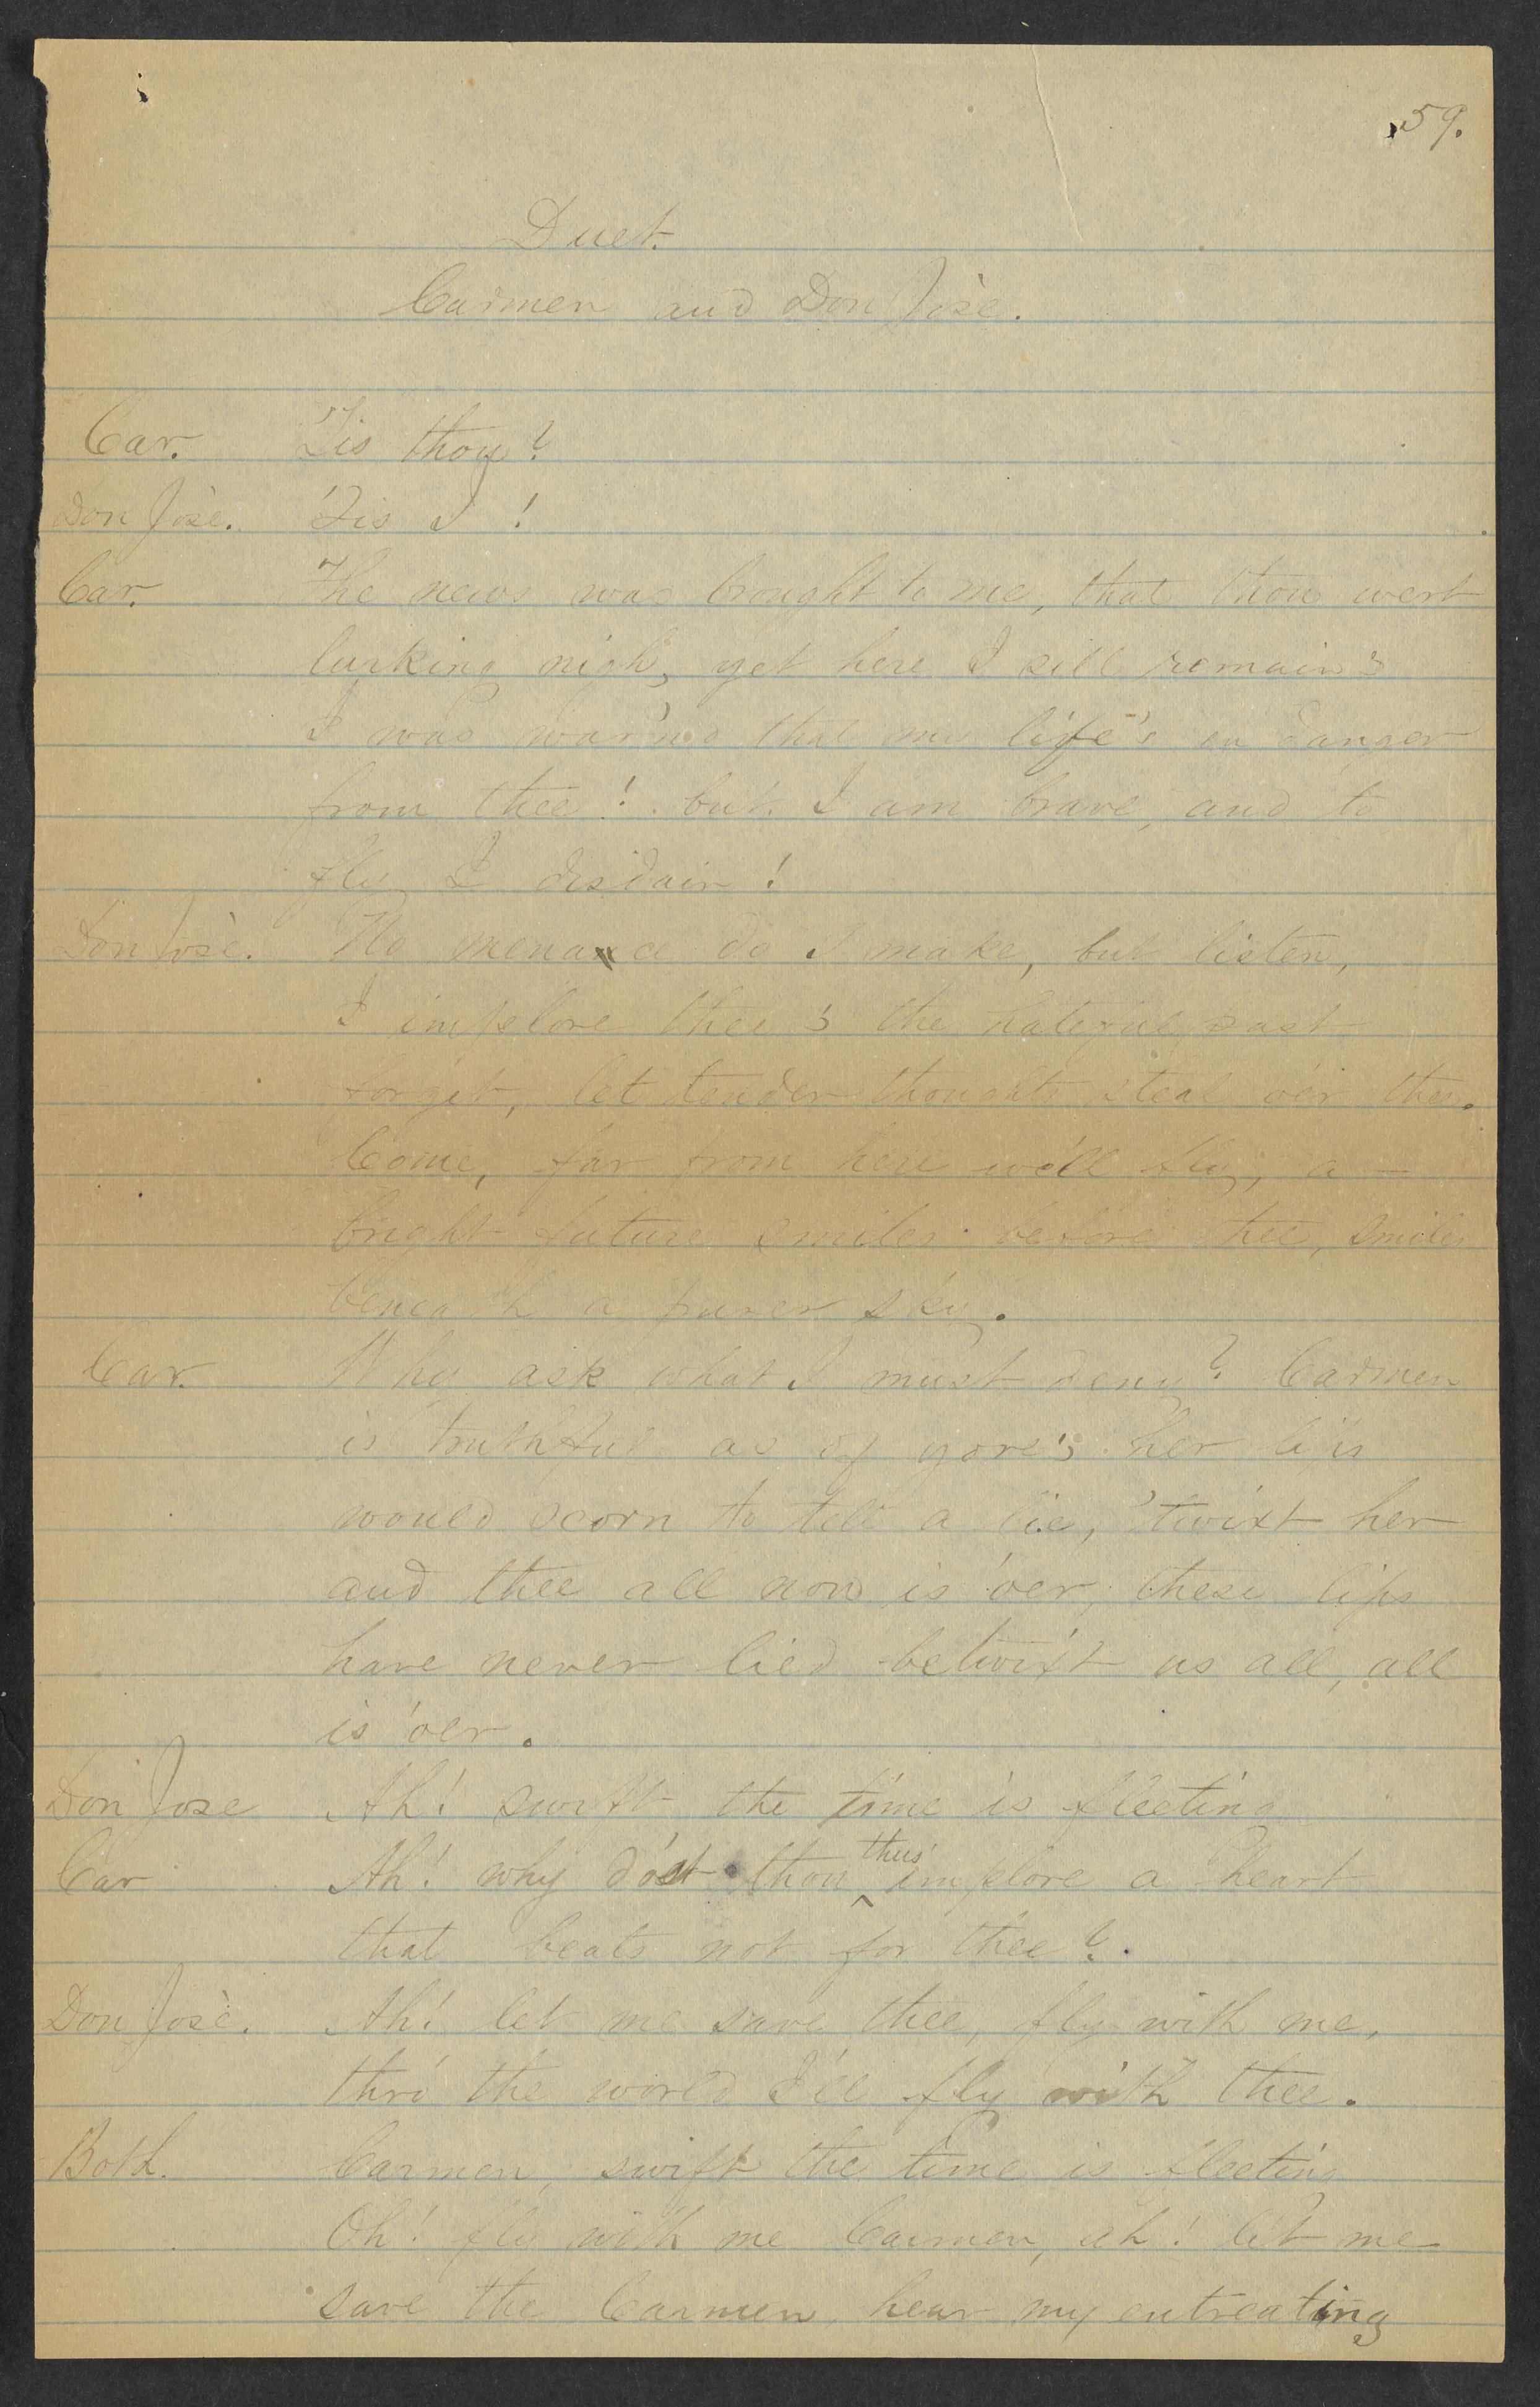 59.
Duet.
Carmen and Don Josè.
Car. 'Tis thou?
Don Josè. 'Tis I!
Car. The news was brought to me, that thou wert
lurking nigh, yet here I still remain;
I was warn'd that my life's in danger
from thee! but I am brave, and to
fly I disdain!
Don Josè. No menace do I make, but listen,
I implore thee; the hateful past
forget, let tender thoughts steal o'er thee.
Come, far from here we'll fly, a
bright future smiles before thee, smiles
beneath a purer sky.
Car. Why ask what I must deny? Carmen
is truthful as of yore; her lips
would scorn to tell a lie, 'twixt her
and thee all now is o'er, these lips
have never lied betwixt us all, all
is o'er.
Don Jose Ah! swift the time is fleeting
Car Ah! why dost thou thus implore a heart
that beats not for thee?
Don Josè. Ah! let me save thee, fly with me,
thro' the world I'll fly with thee.
Both. Carmen, swift the time is fleeting
Oh! fly with me Carmen, ah! let me
save the Carmen, hear my entreating